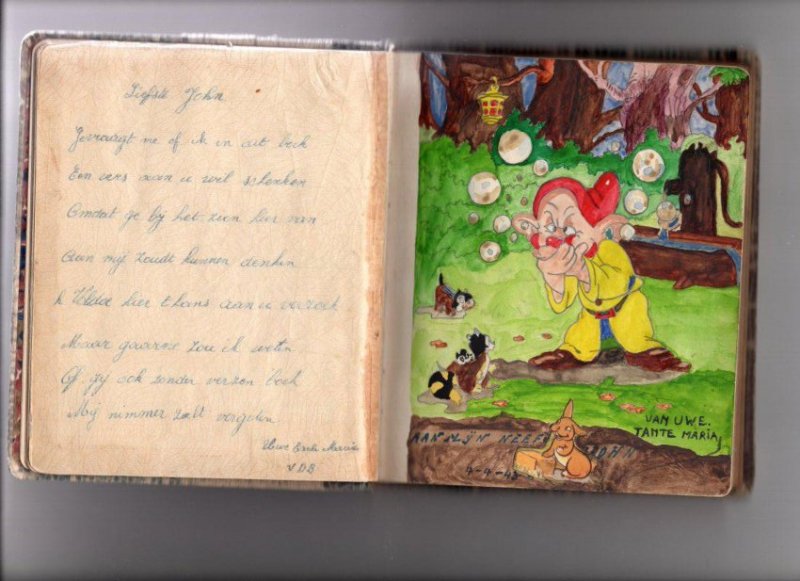 Liefste John
Gevraagt me of ik in dit boek
Een vers aan u wil schenken
Omdat ge bij het zien hier van
Aan mij zoudt kunnen denken
k Voldoe hier thans aan u verzoek
Maar gaarne zou ik weten
Of gij ook zonder verzen boek
Mij nimmer zult vergeten
Uwe Maria
V D B
VAN UWE.
TANTE MARIA
AAN MIJN NEEF JOHN
4-4-48